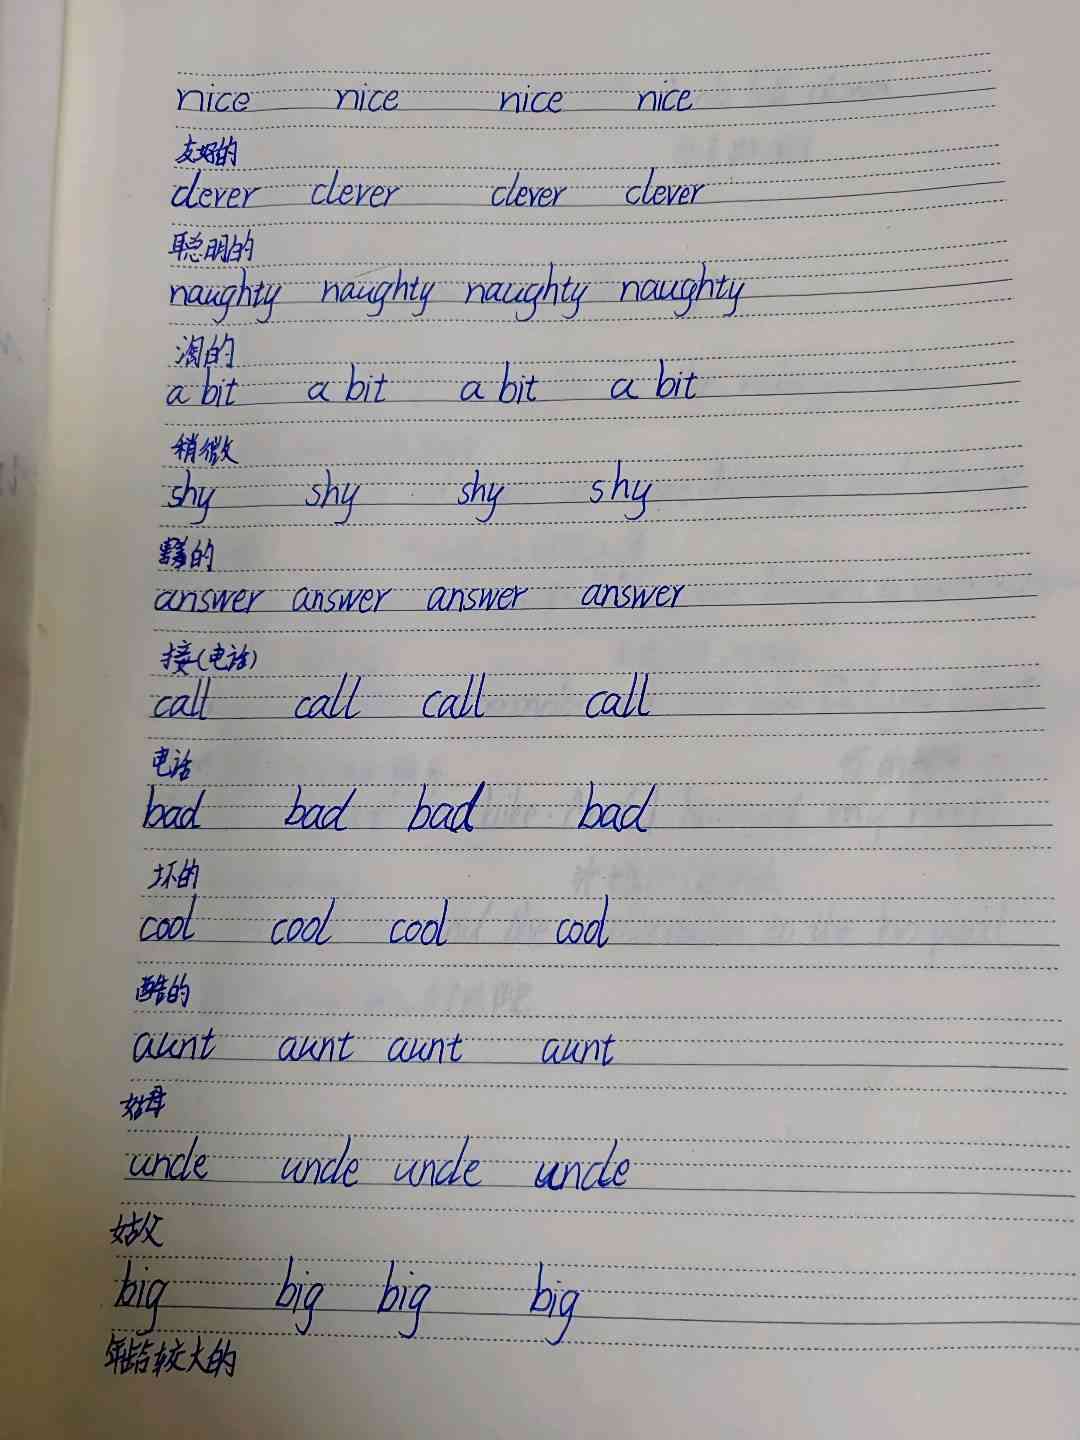 nice nice nice nice
友好的
clever clever clever clever
聪明的
naughty naughty naughty naughty
淘的
a bit a bit a bit a bit
稍微
shy shy shy shy
的
answer answer answer answer
接(电话)
call call call call
电话
bad bad bad bad
坏的
cool cool cool cool
酷的
aunt aunt aunt aunt
姑母
uncle uncle uncle uncle
姑父
big big big big
年龄较大的